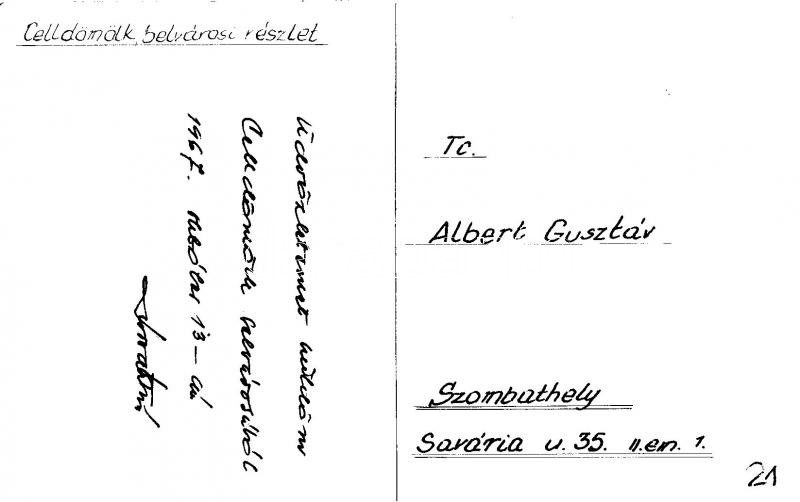 Celldömölk, belvárosi részlet
Üdvözletemet küldöm
Celldömölk belvárosából
1967. október 13-án
Tc.
Albert Gusztáv
Szombathely
Savária u. 35. II. em. 1.
21